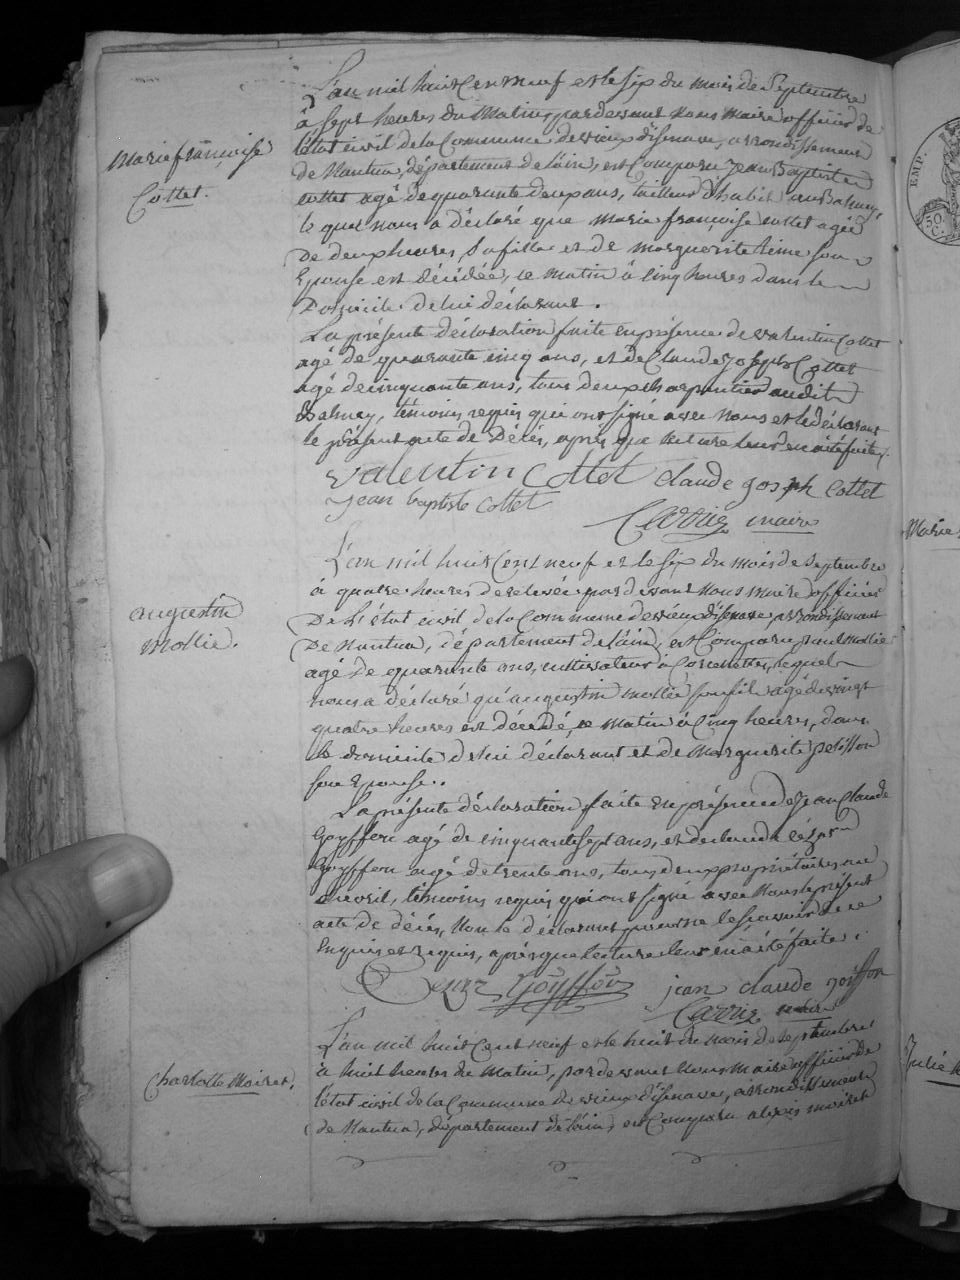 Marie françoise
Cottet.
L'an mil huit Cent neuf et le six du mois de Septembre
à sept heures du Matin, pardevant Nous Maire officier de
l'état civil de la Commune de vieux d'isenave, arrondissement
de Nantua, département de l'ain, est Comparu Jean Baptiste
cottet agé de quarante deux ans, tailleur d'habit au Balmay,
le quel nous a déclaré que Marie françoise cottet agée
De deux heures, sa fille et de marguerite son
Epouse est décédée, ce matin à cinq heures dans le
Domicile de lui déclarant.
La présente déclaration faite en présence de valentin Cottet
agé de quarante cinq ans, et de Claude joseph Cottet
agé de cinquante ans, tous deux charpentier audit
Balmay, témoins requis qui ont signé avec nous et le déclarant
le présent acte de Décès, après que lecture leur en a été faite.
valentin Cottet claude joseph Cottet
jean baptiste cottet
maire
augustin
Mollie.
L'an mil huit Cent neuf et le six du mois de Septembre
à quatre heures de relevée pardevant Nous maire officier
De l'état civil de la Commune de vieux d'isenave arrondissement
De Nantua, département de l'ain, est Comparu paul Mollie
agé de quarante ans, cultivateur à lequel
nous a déclaré qu'augustin mollie son fils agé de vingt
quatre heures est décédé, ce matin à Cinq heures, dans
le domicile de lui déclarant et de Marguerite pelisson
son Epouse..
La présente déclaration faite En présence de Jean Claude
Goyffon agé de cinquante sept ans, et de claude César
Goyffon agé de trente ans, tous deux propriétaires au
témoins requis qui ont signé avec Nous le présent
acte de décès, Non le déclarant pour ne le scavoir de ce
Enquis et requis, après que lecture leur en a été faite.
Cezar Goÿffon jean claude goiffon
maire
Charlotte Moiret.
L'an mil huit Cent neuf et le huit du mois de septembre
à huit heures du Matin, pardevant Nous Maire officier de
l'état civil de la Commune de vieux d'isenave, arrondissement
de Nantua, département de l'ain, est Comparu alexis moiret
EMP.
50.
C.
Marie
Julie